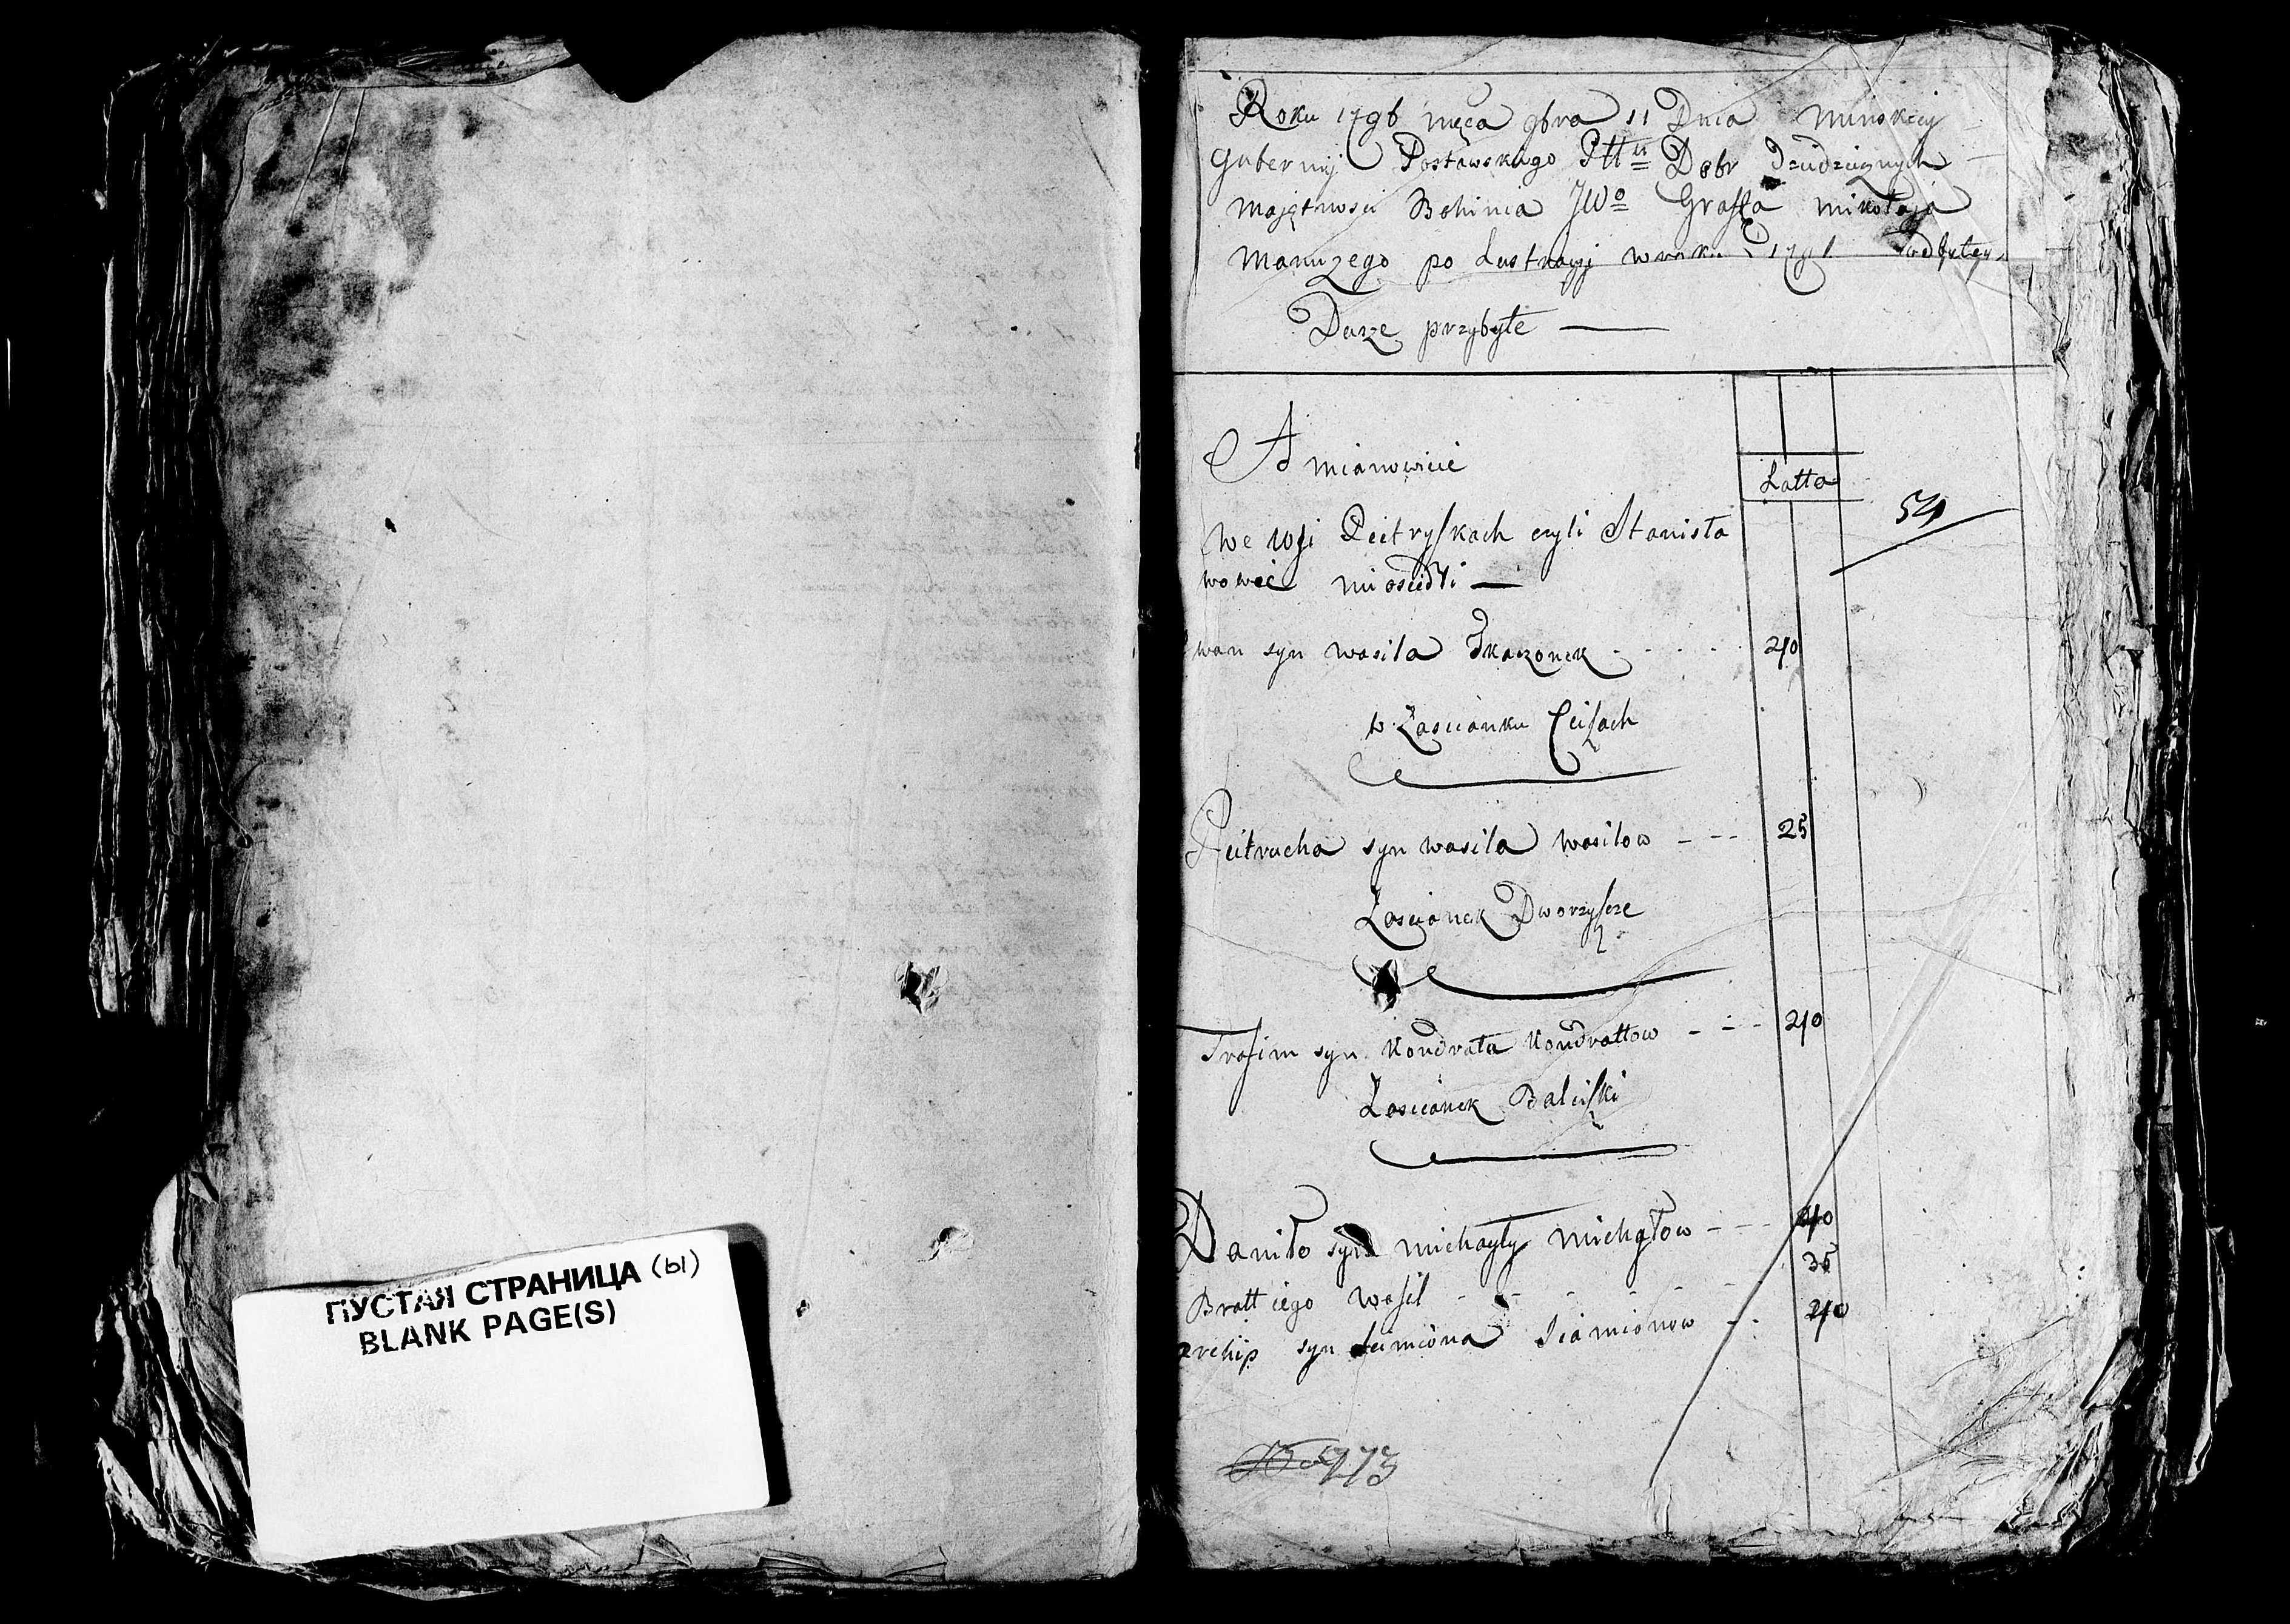 ПУСТАЯ СТРАНИЦА (ы)
BLANK PAGE(S)
Roku 1796 męca 9bra 11 Dnia Minskiey
Gubernij Postawskiego Pttu Dobr Dziedzicznych
Maiętnosci Bohinia JWo Graffa Mikołaja
Manuzego po Lustracyi w roku 1795 odbytey
Dusze przybyłe —
A mianowicie
Latta
54
We wsi Pietryskach czyli Stanisła
wowie mi osiedli —
Iwan syn wasila Tkaczonek - - - - 40
w Zascianku Ceisach
Pietrucha syn wasila wasilow - - - 25
Zascianek Dworzyscze
Trafim syn Kondrata Kondrattow - - - 40
Zascianek Balciski
Daniło syn michayły michałow - - - 40
Bratt iego wasil - - - - - - 35
archip syn Siemiona Siamionow - - 40
273